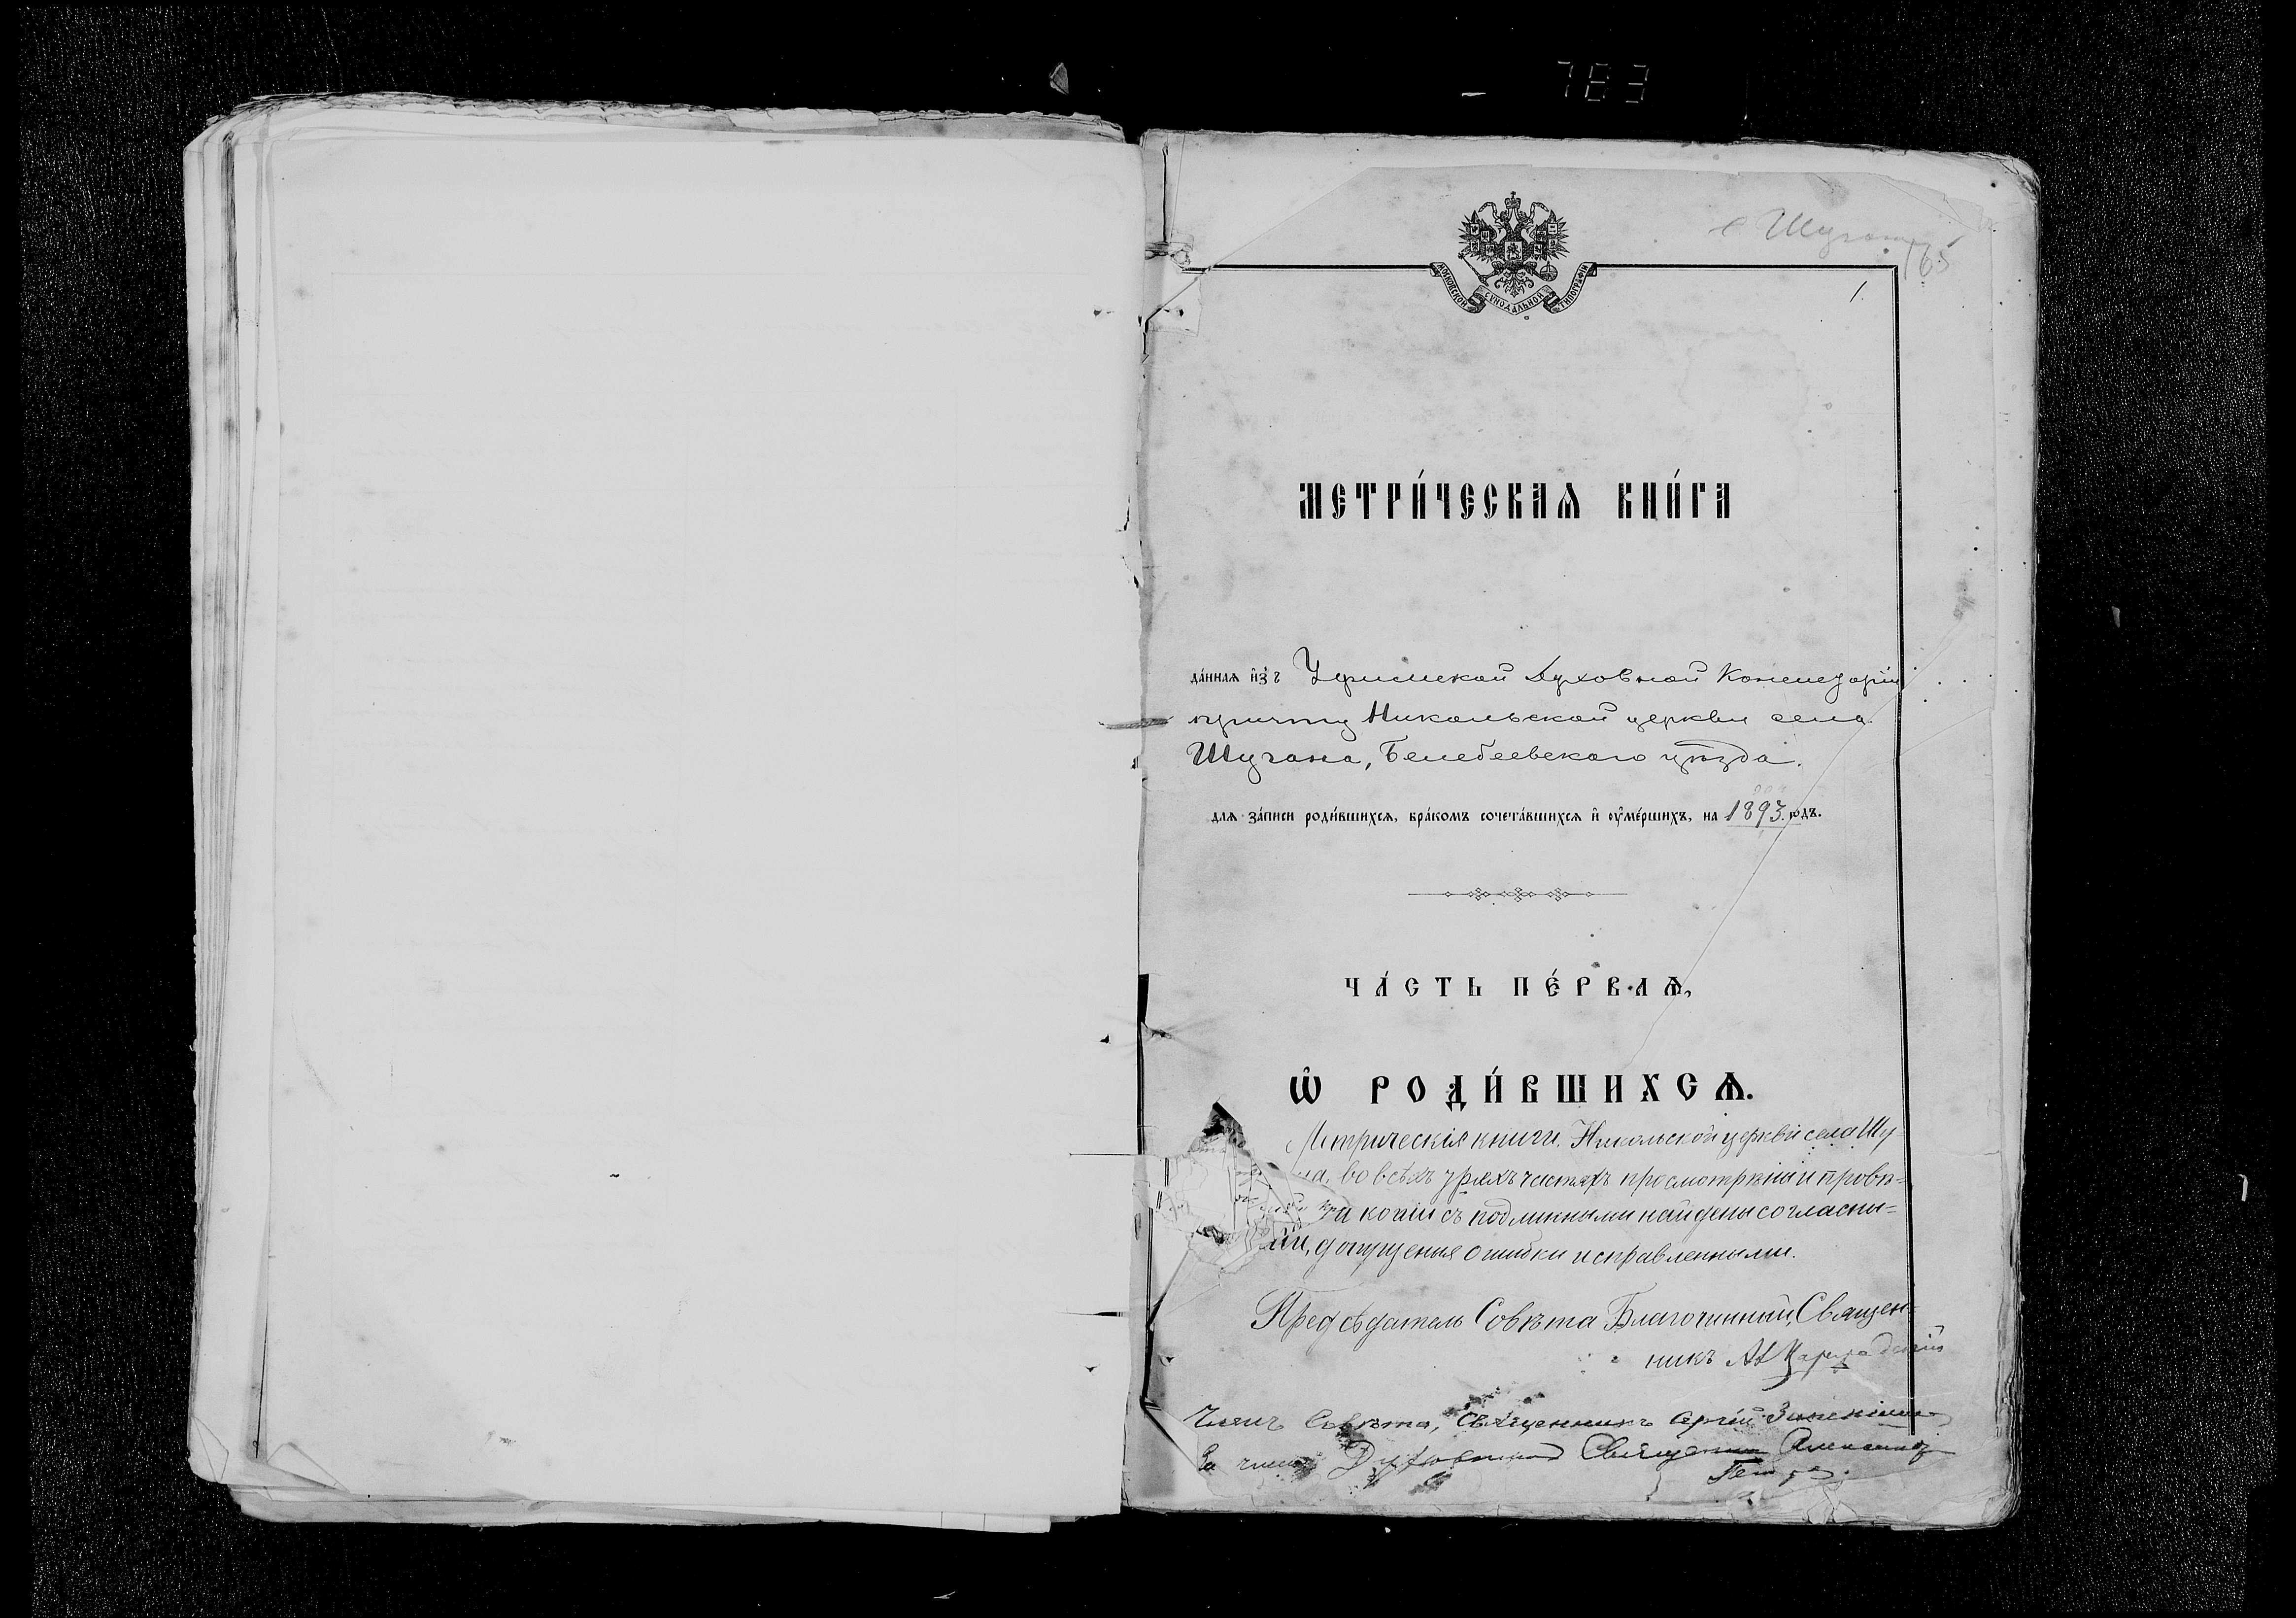 763
с Шуган
165
МОСКОВСКОЙ СѴНОДАЛЬНОЙ ТИПОГРАФІИ
1.
МЕТРИ́ЧЕСКАѦ КНИ́ГА
да́ннаѧ и҆зъ Уфимской Духовной Консисторіи
причту Никольской церкви села
Шугана, Белебеевскаго уѣзда.
длѧ за́писи роди́вшихсѧ, бра́комъ сочета́вшихсѧ и҆ ᲂу҆ме́ршихъ, на 1893. годъ.
ЧА́СТЬ ПЕ́РВАѦ,
Ѡ҆ РОДИ́ВШИХСѦ.
Метрическія книги Никольской церкви села Шу-
на, во всѣхъ трехъ частяхъ просмотрѣны и провѣ-
и копіи съ подлинными найдены согласны-
ми, допущенныя ошибки исправленными.
Предсѣдатель Совѣта Благочинный, Священ-
никъ
Членъ Совѣта, Священникъ Сергій
За члена Духовника Священник Александр